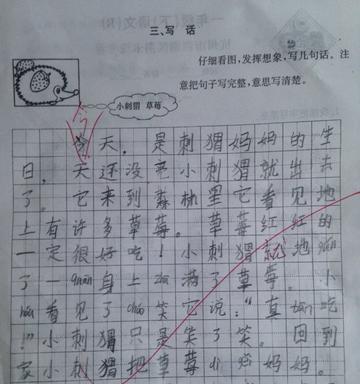 三、写 话
仔细看图，发挥想象，写几句话。注
意把句子写完整，意思写清楚。
小刺猬 草莓
今天，是刺猬妈妈的生
日，天还没亮小刺猬就出去
了。它来到森林里它看见地
上有许多草莓。草莓红红的
一定很好吃！小刺猬就地
了一 身上 满了草莓。小
看见了 笑它说：“真 吃
！”小刺猬只是笑了笑。回到
家小刺猬把草莓 妈妈。